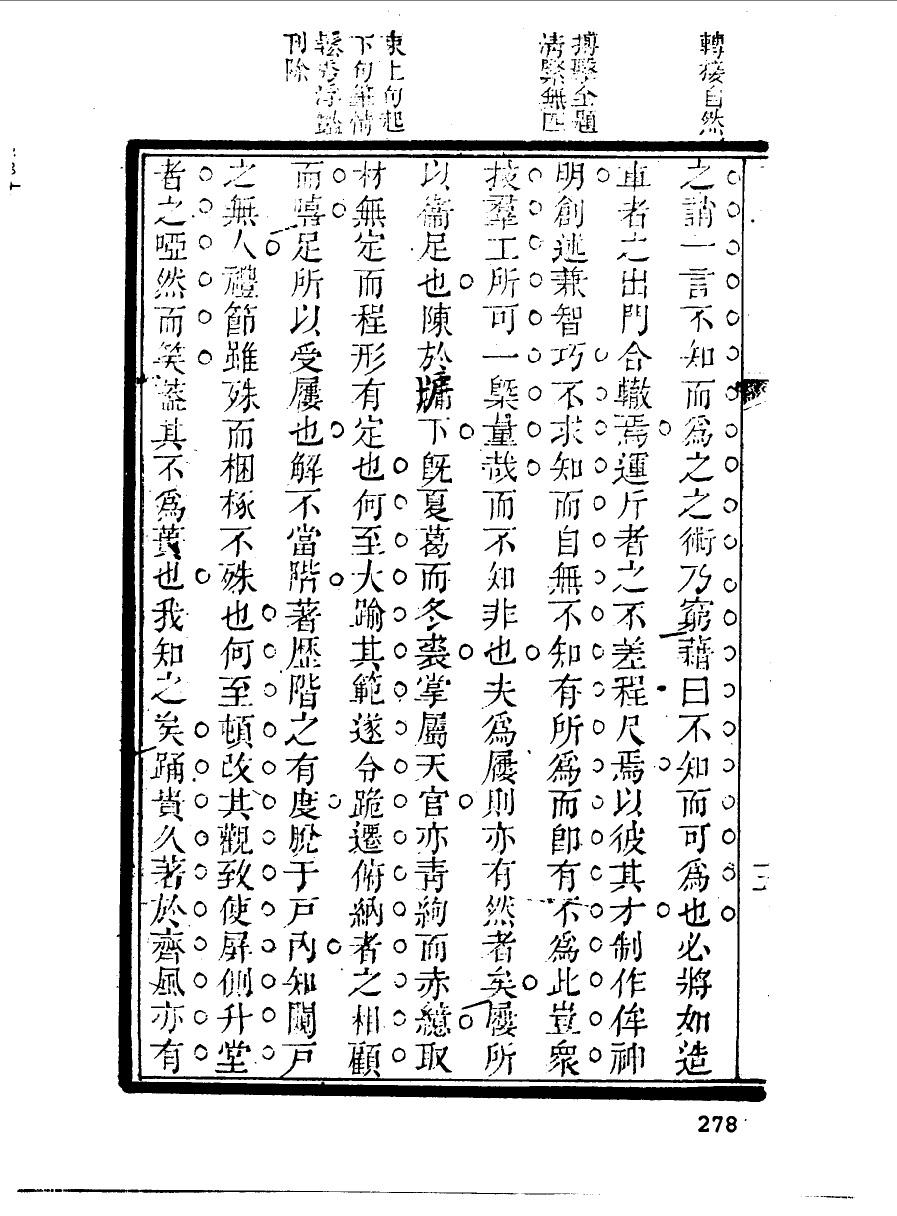 轉接自然
搏擊全題
清緊無匹
束上句起
下句筆情
刊除
之誚一言不知而爲之之術乃窮藉曰不知而可爲也必將如造
車者之出門合轍焉運斤者之不差程尺焉以彼其才制作侔神
明創述兼智巧不求知而自無不知有所爲而卽有不爲此豈衆
技羣工所可一槩量哉而不知非也夫爲屨則亦有然者矣屨所
以衞足也陳於牗下旣夏葛而冬裘掌屬天官亦靑絇而赤繶取
材無定而程形有定也何至大踰其範遂令跪遷俯納者之相顧
而嘻足所以受屨也解不當階著歷階之有度脫于戸內知闑戸
之無人禮節雖殊而梱椓不殊也何至頓改其觀致使屛側升堂
者之啞然而笑葢其不爲蕢也我知之矣踊貴久著於齊風亦有
三
278